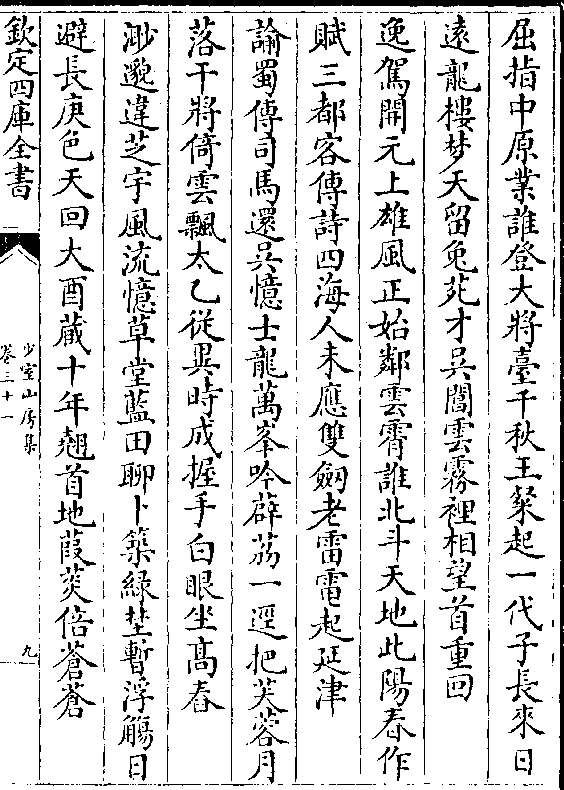 屈指中原業誰登大將臺千秋王粲起一代子長來日
遠龍樓夢天留兔苑才吳閶雲霧裡相望首重回
逸駕開元上雄風正始鄰雲霄誰北斗天地此陽春作
賦三都客傳詩四海人未應雙劒老雷電起延津
諭蜀傳司馬還吳憶士龍萬峯吟薜荔一逕把芙蓉月
落干將倚雲飄太乙從異時成握手白眼坐高舂
渺邈違芝宇風流憶草堂藍田聊卜築緑埜暫浮觴日
避長庚色天回大酉藏十年翹首地葭菼倍蒼蒼
欽定四庫全書
少室山房集
卷三十一
九